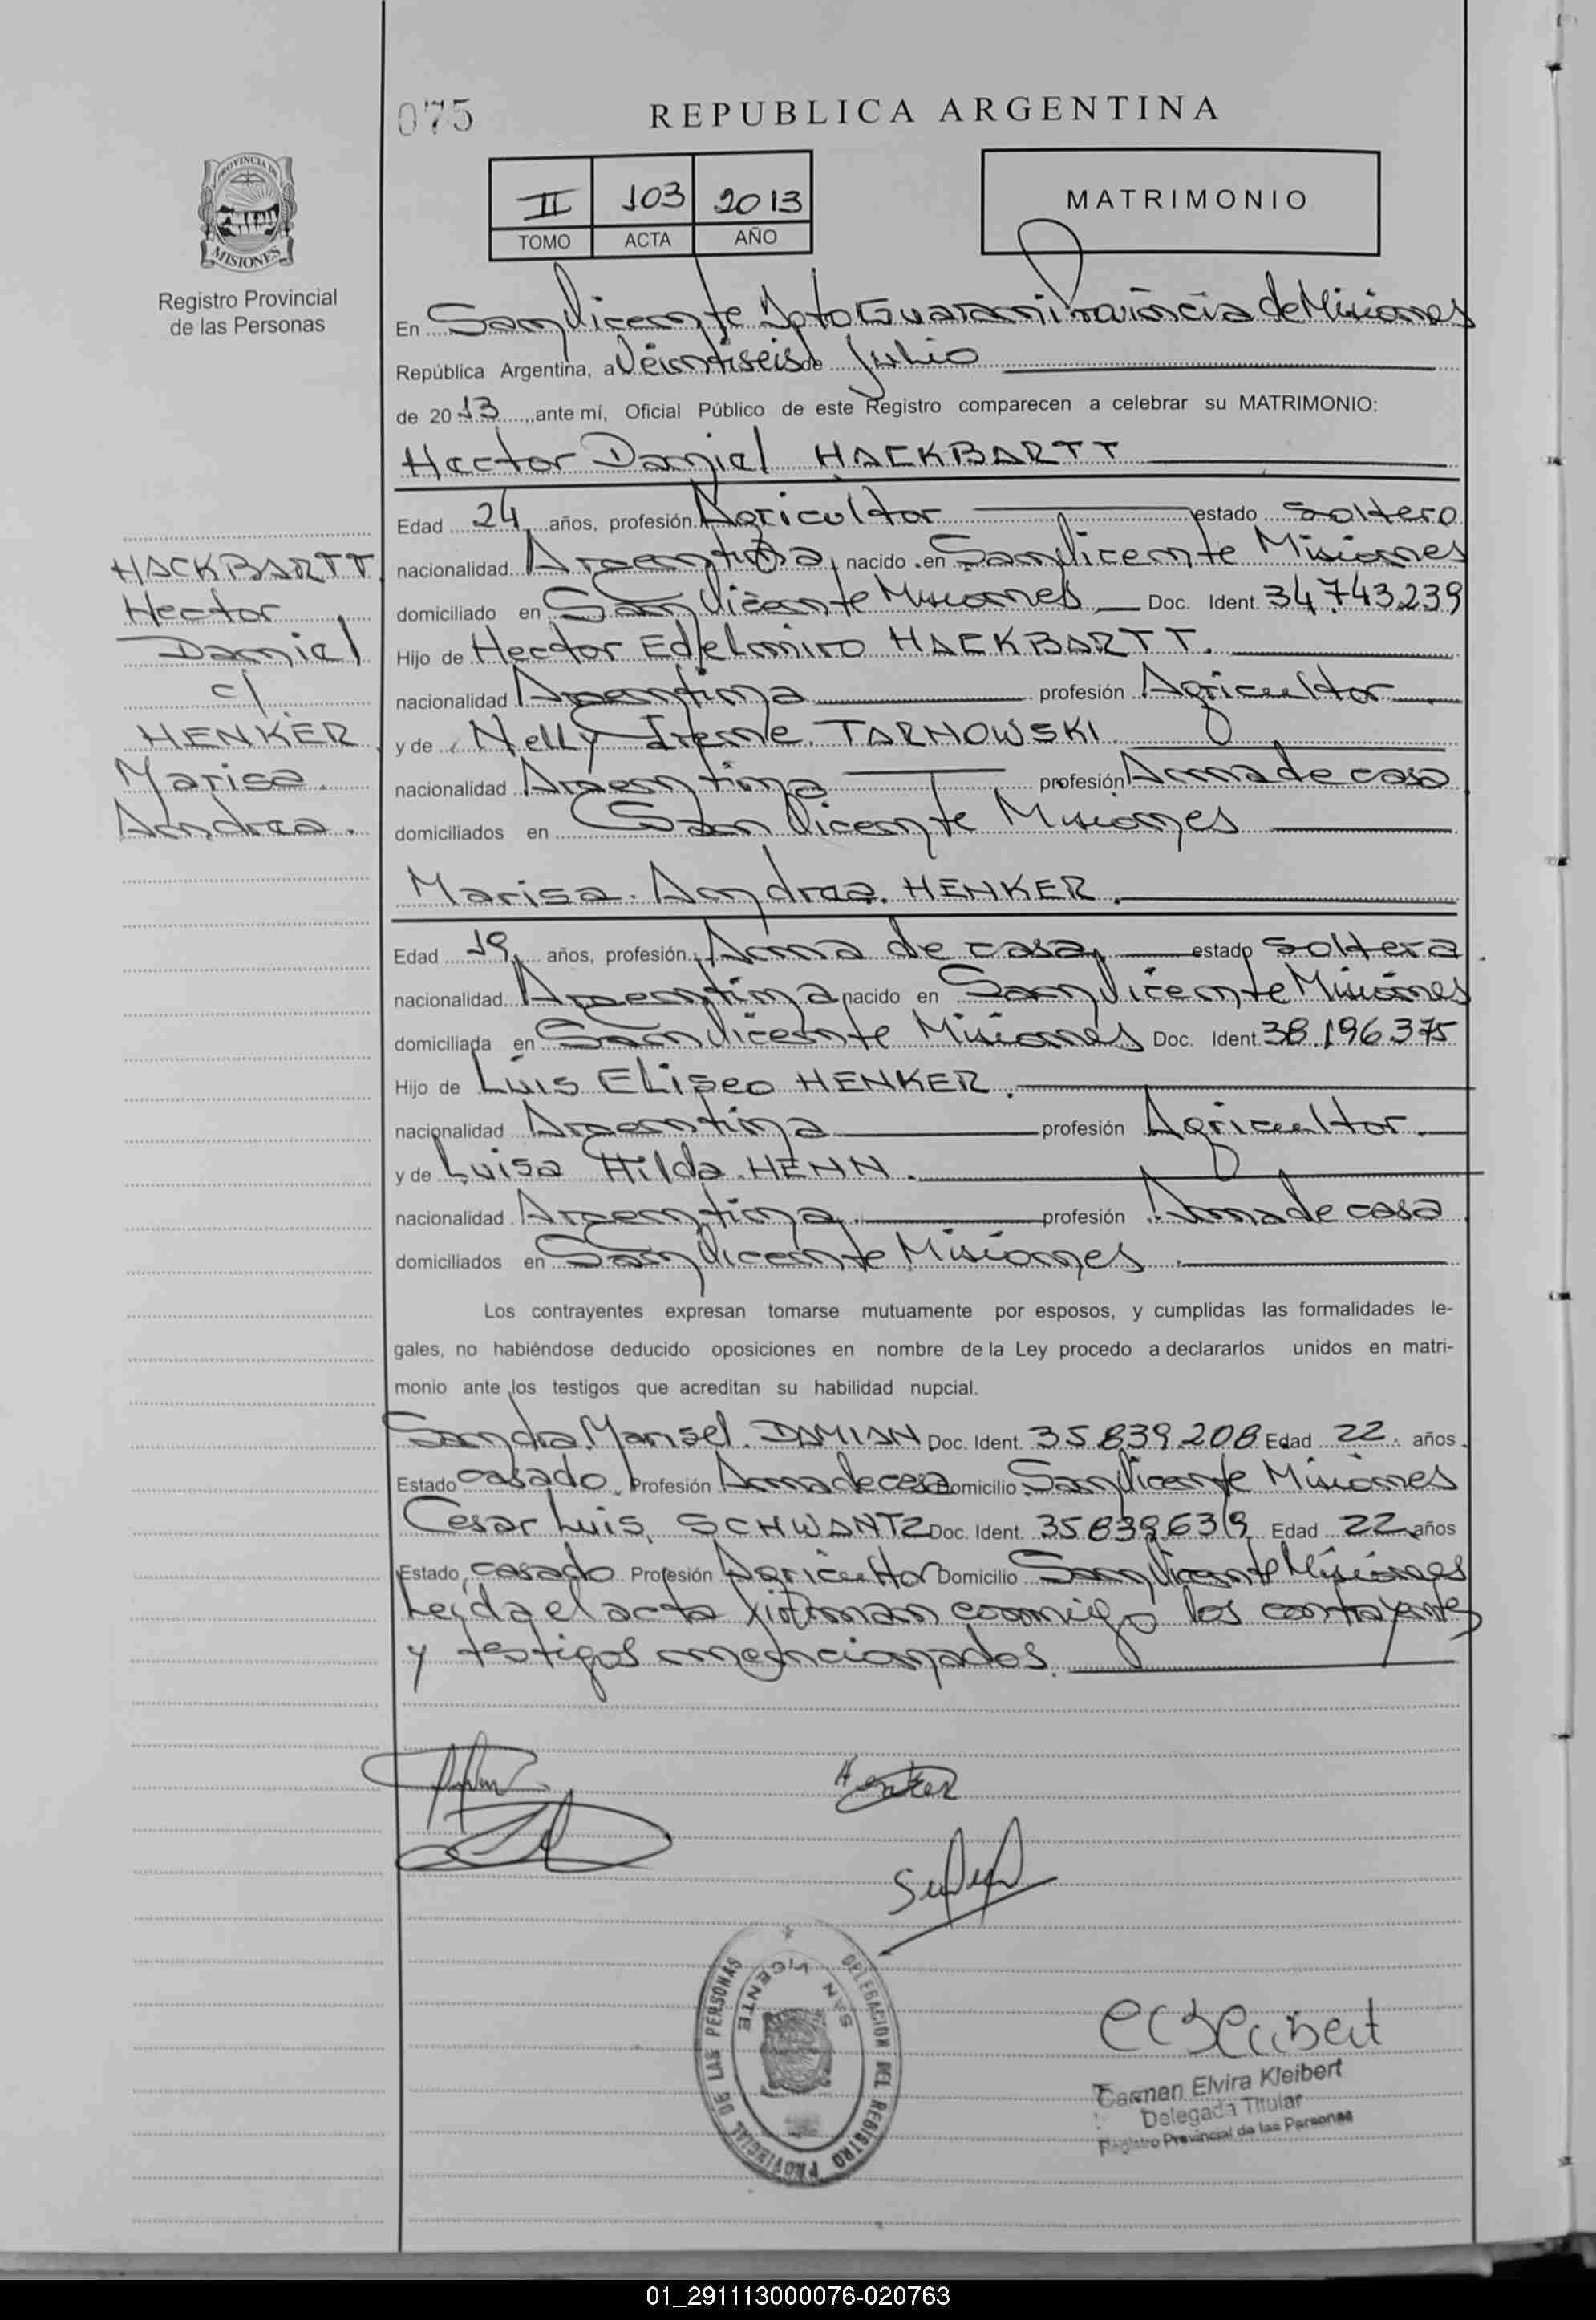 075
REPUBLICA ARGENTINA
PROVINCIA DE
MISIONES
Registro Provincial
de las Personas
II 103 2013
TOMO ACTA AÑO
MATRIMONIO
En San Vicente Dpto Guarani Provincia de Misiones
República Argentina, a Veintiseis de Julio
de 2013, ante mí, Oficial Público de este Registro comparecen a celebrar su MATRIMONIO:
Hector Daniel HACKBARTT
Edad 24 años, profesión Agricultor estado soltero
nacionalidad Argentina, nacido en San Vicente Misiones
domiciliado en San Vicente Misiones Doc. Ident. 34.743.239
Hijo de Hector Edelmiro HACKBARTT.
nacionalidad Argentina profesión Agricultor
y de Nelly Irene TARNOWSKI
nacionalidad Argentina profesión Ama de casa
domiciliados en San Vicente Misiones
HACKBARTT
Hector
Daniel
c/
HENKER
Marisa
Andrea.
Marisa Andrea HENKER.
Edad 19 años, profesión Ama de casa, estado soltera
nacionalidad Argentina nacido en San Vicente Misiones
domiciliada en San Vicente Misiones Doc. Ident. 38.196.375
Hijo de Luis Eliseo HENKER.
nacionalidad Argentina profesión Agricultor
y de Luisa Hilda HENN.
nacionalidad Argentina profesión Ama de casa
domiciliados en San Vicente Misiones
Los contrayentes expresan tomarse mutuamente por esposos, y cumplidas las formalidades le-
gales, no habiéndose deducido oposiciones en nombre de la Ley procedo a declararlos unidos en matri-
monio ante los testigos que acreditan su habilidad nupcial.
Sandra Marisel DAMIAN Doc. Ident. 35.839.208 Edad 22 años
Estado casado Profesión Ama de casa Domicilio San Vicente Misiones
Cesar Luis SCHWANTZ Doc. Ident. 35.839.639 Edad 22 años
Estado casado Profesión Agricultor Domicilio San Vicente Misiones
Leida el acta firman conmigo los contrayentes
y testigos mencionados.
Henker
DELEGACION DEL REGISTRO PROVINCIAL DE LAS PERSONAS
SAN VICENTE
Carmen Elvira Kleibert
Delegada Titular
Registro Provincial de las Personas
01_291113000076-020763